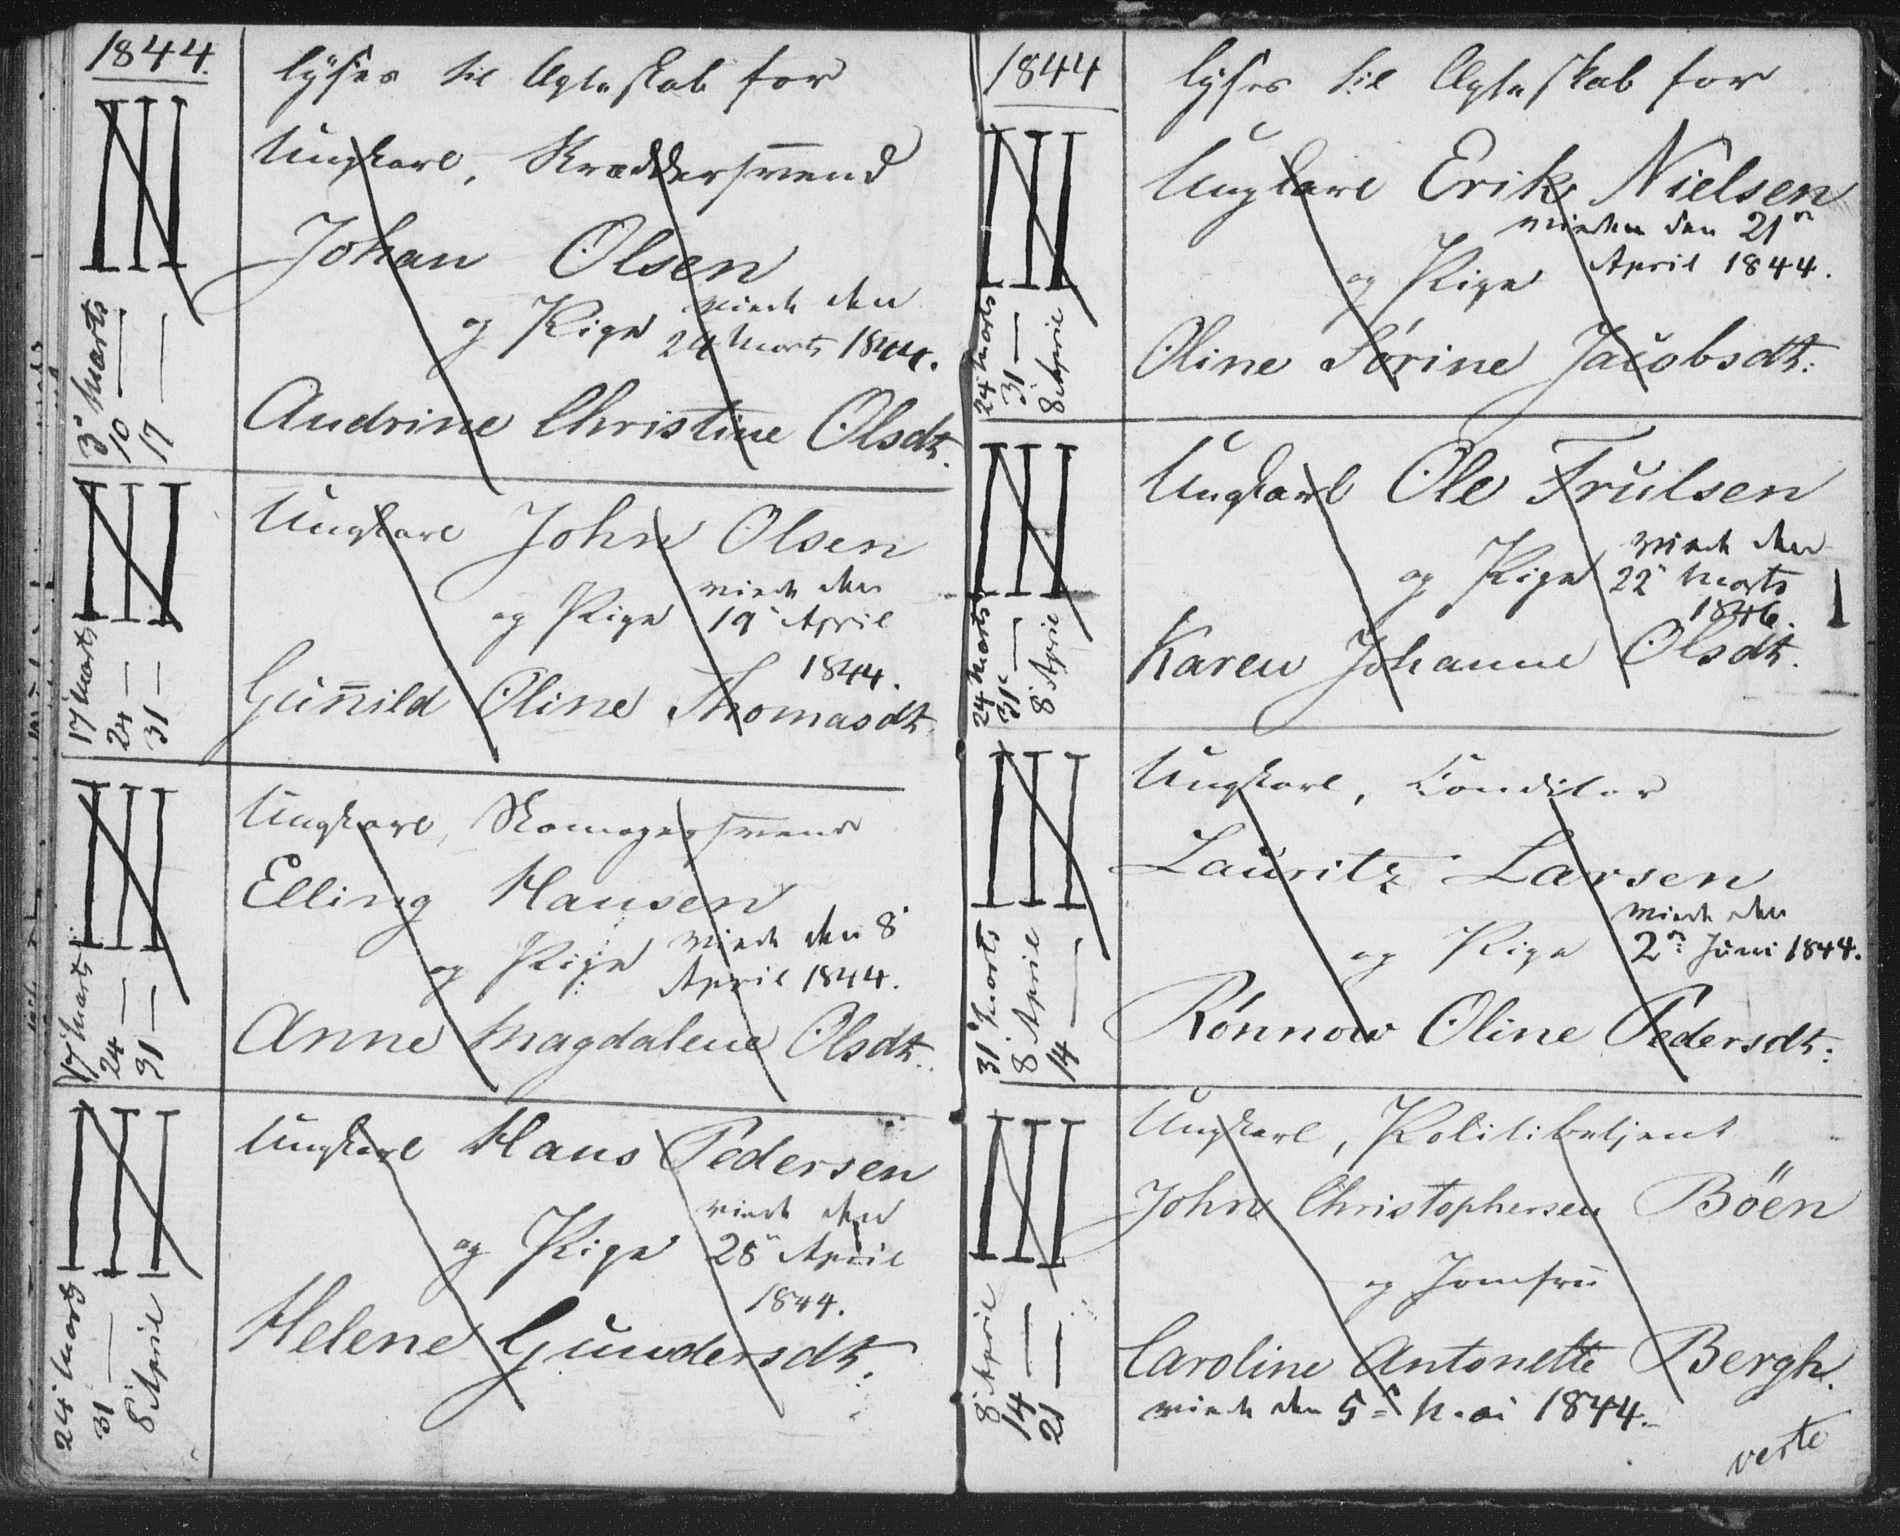 1844.
lyses til Ægteskab for
Ungkarl, Skræddersvend
Johan Olsen
og Pige viede den
24 Marts 1844.
Andrine Christine Olsdt.
3' Marts
10 —
17 —
Ungkarl John Olsen
og Pige viede den
19' April
1844.
Gun̄ild Oline Thomasdt.
17' Marts
24 —
31 —
Ungkarl, Skomagersvend
Elling Hansen
og Pige viede den 8'
April 1844.
Anne Magdalene Olsdt.
17' Marts
24 —
31 —
Ungkarl Hans Pedersen
og Pige viede den
28' April
1844.
Helene Gundersdt.
24' Marts
31 —
8' April
1844
lyses til Ægteskab for
Ungkarl Erik Nielsen
viede den 21'
og Pige April 1844.
Oline Sørine Jacobsdt:
24 Marts
31 —
8' April
Ungkarl Ole Trulsen
og Pige viede den
22' Marts
1846.
Karen Johanne Olsdt.
24 Marts
31' —
8' April
Ungkarl, Conditor
Lauritz Larsen
viede den
og Pige 2n: Juni 1844.
Rónnow Oline Pedersdt:
31' Marts
8' April
14 —
Ungkarl, Politibetjent
John Christophersen Böen
og Jomfru
Caroline Antonette Bergh.
viede den 5' Mai 1844.
8' April
14 —
21 —
verte